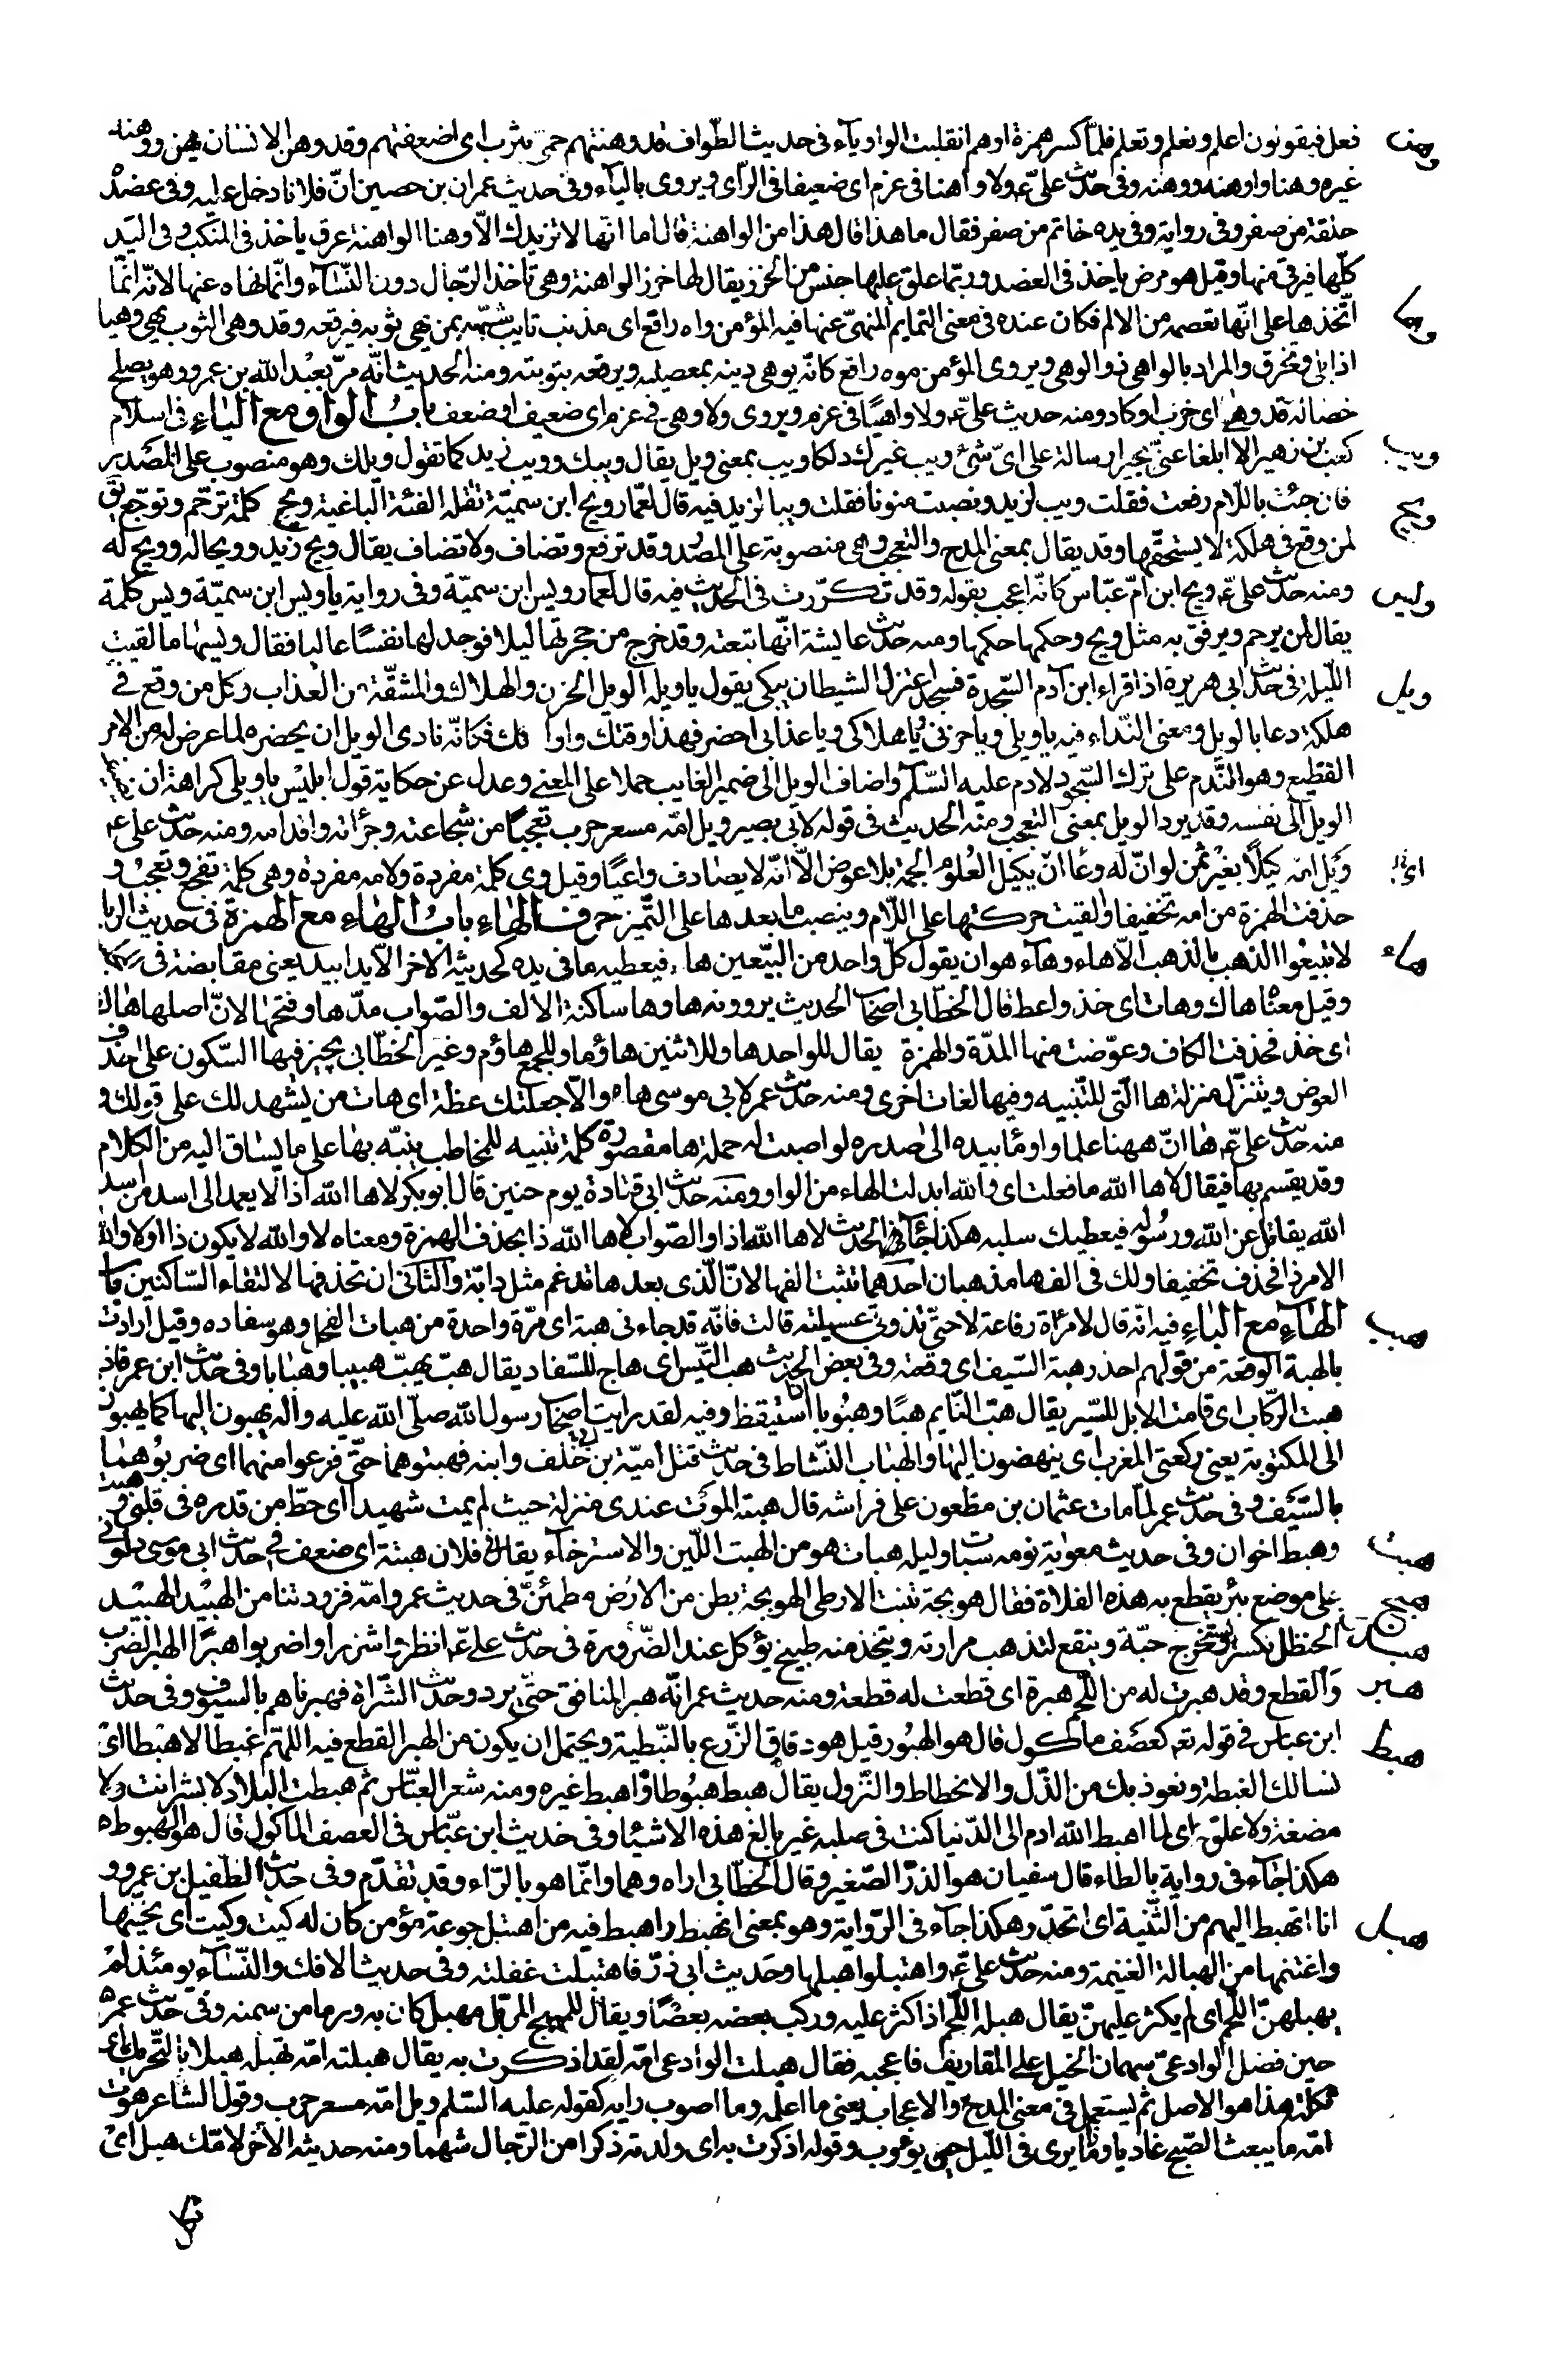 فعل فيقولون اعلم ونعلم وتعلم فلما كسر همزة اوهم انقلبت الواو ياء فى حديث الطواف قد وهنتهم حمى يثرب اى اضعفتهم وقد وهن الانسان يهن ووهنه
وهن
غيره وهنا واوهنه ووهنه وفى حديث على ع ولا واهنا فى عزم اى ضعيفا فى الرأى ويروى بالياء وفى حديث عمران بن حصين ان فلانا دخل عليه وفى عضده
حلقة من صفر وفى رواية وفى يده خاتم من صفر فقال ما هذا قال هذا من الواهنة قال اما انها لا تزيدك الا وهنا الواهنة عرق ياخذ فى المنكب وفى اليد
كلها فيرقى منها وقيل هو مرض ياخذ فى العضد وربما علق عليها جنس من الخرز يقال لها خرز الواهنة وهى تأخذ الرجال دون النساء وانما نهاه عنها لانه انما
وها
اتخذها على انها تعصمه من الالم فكان عنده فى معنى التمايم المنهى عنها فيه المؤمن واه راقع اى مذنب تايب شبهه بمن يهى ثوبه فيرقعه وقد وهى الثوب يهى وهيا
اذا بلى وتخرق والمراد بالواهى ذو الوهى ويروى المؤمن موه راقع كانه يوهى دينه بمعصيته ويرقعه بتوبته ومنه الحديث انه مر بعبد الله بن عمرو وهو يصلح
خصا له قد وهى اى خرب او كاد ومنه حديث على ع ولا واهيا فى عزم ويروى ولا وهى فى عزم اى ضعيف او ضعف باب الواو مع الياء فى اسلام
ويب
كعب بن زهير الا ابلغا عنى بجيرا رسالة على اى شئ ويب غيرك دلكا ويب بمعنى ويل يقال ويبك وويب زيد كما تقول ويلك وهو منصوب على المصدر
فان جئت باللام رفعت فقلت ويب لزيد ونصبت منونا فقلت ويبا لزيد فيه قال لعمار ويح ابن سمية تقتله الفئة الباغية ويح كلمة ترحم وتوجع يق
ويح
لمن وقع فى هلكة لا يستحقها وقد يقال بمعنى المدح والتعجب وهى منصوبة على المصدر وقد ترفع وتضاف ولا تضاف يقال ويح زيد وويحا له وويح له
ومنه حديث على ع ويح ابن ام عباس كانه اعجب بقوله وقد تكررت فى الحديث فيه قال لعمار ويس ابن سمية وفى رواية يا ويس ابن سمية ويس كلمة
ويس
يقال لمن يرحم ويرفق به مثل ويح وحكمها حكمها ومنه حديث عايشة انها تبعته وقد خرج من حجرتها ليلا فوجد لها نفسا عاليا فقال ويسها ما لقيت
الليلة فى حديث ابى هريرة اذا قراء ابن آدم السجدة فسجد اعتزل الشيطان يبكى يقول يا ويله الويل الحزن والهلاك والمشقة من العذاب وكل من وقع فى
ويل
هلكة دعا بالويل ومعنى النداء فيه يا ويلى ويا حزنى ويا هلاكى ويا عذابى احضر فهذا وقتك واوانك فكانه نادى الويل ان يحضره لما عرض له من الامر
الفظيع وهو الندم على ترك السجود لادم عليه السلام واضاف الويل الى ضمير الغايب حملا على المعنى وعدل عن حكاية قول ابليس يا ويلى كراهة ان يضيف
الويل الى نفسه وقد يرد الويل بمعنى التعجب ومنه الحديث فى قوله لابى بصير ويل امه مسعر حرب تعجبا من شجاعته وجرأته واقدامه ومنه حديث على ع
ويل امه كيلا بغير ثمن لو ان له وعاء ان يكيل العلوم الجمة بلا عوض الا انه لا يصادف واعيا وقيل وى كلمة مفردة ولامه مفردة وهى كلمة تفجع وتعجب و
اى
حذفت الهمزة من امه تخفيفا والقيت حركتها على اللام وينصب ما بعدها على التميز حرف الهاء باب الهاء مع الهمزة فى حديث الربا
هاء
لا تبيعوا الذهب بالذهب الا هاء وهاء هو ان يقول كل واحد من البيعين هاء فيعطيه ما فى يده كحديثه الاخر الا يدا بيد يعنى مقابضة فى
وقيل معناه هاك وهات اى خذ واعط قال الخطابى اصحاب الحديث يروونه ها وها ساكنة الالف والصواب مدها وفتحها لان اصلها هاك
اى خذ فحذفت الكاف وعوضت منها المدة والهمزة يقال للواحد هاء وللاثنين هاؤما وللجمع هاؤم وغير الخطابى يجيز فيها السكون على حذف
العوض ويتنزل منزلة ها التى للتنبيه وفيها لغات اخرى ومنه حديث عمر لابى موسى هاء والا جعلتك عظة اى هات من يشهد لك على قولك و
منه حديث على ع ها ان ههنا علما واومأ بيده الى صدره لو اصبت له حملة ها مقصورة كلمة تنبيه للمخاطب ينبه بها على ما يساق اليه من الكلام
وقد يقسم بها فيقال لاها الله ما فعلت اى والله ابدلت الهاء من الواو ومنه حديث ابى قتادة يوم حنين قال ابو بكر لاها الله اذا لا يعمد الى اسد من اسد
الله يقاتل عن الله ورسوله فيعطيك سلبه هكذا جاء فى الحديث لاها الله اذا والصواب لاها الله ذا بحذف الهمزة ومعناه لا والله لا يكون ذا او لا والله
الامر ذا فحذف تخفيفا ولك فى الف ها مذهبان احدهما تثبت الفها لان الذى بعدها مدغم مثل دابة والثانى ان تحذفها لالتقاء الساكنين باب
الهاء مع الباء فيه انه قال لامرأة رفاعة لا حتى تذوقى عسيلته قالت فانه قد جاءنى هبة اى مرة واحدة من هباب الفحل وهو سفاده وقيل ارادت
هبب
بالهبة الوقعة من قولهم احذر هبة السيف اى وقعته وفى بعض الحديث هب التيس اى هاج للسفاد يقال هب يهب هبيبا وهبابا وفى حديث ابن عمر فاذا
هبت الركاب اى قامت الابل للسير يقال هب النايم هبا وهبوبا استيقظ وفيه لقد رايت اصحاب رسول الله صلى الله عليه واله يهبون اليها كما يهبون
الى المكتوبة يعنى ركعتى المغرب اى ينهضون اليها والهباب النشاط فى حديث قتل امية بن خلف وابنه فهبتوهما حتى فرغوا منهما اى ضربوهما
هبت
بالسيف وفى حديث عمر لما مات عثمان بن مظعون على فراشه قال هبته الموت عندى منزلة حيث لم يمت شهيدا اى حط من قدره فى قلبى و
وهبط اخوان وفى حديث معوية نومه سبات وليله هبات هو من الهبت اللين والاسترخاء يقال فى فلان هبتة اى ضعف فى حديث ابى موسى دلونى
هبج
على موضع بئر يقطع به هذه الفلاة فقال هوبجة تنبت الارطى الهوبجة بطن من الارض مطمئن فى حديث عمر وامه فزودتنا من الهبيد الهبيد
هبد
الحنظل يكسر ويستخرج حبه وينقع لتذهب مرارته ويتخذ منه طبيخ يؤكل عند الضرورة فى حديث على ع انظروا شزرا واضربوا هبرا الهبر الضرب
هبر
والقطع وقد هبرت له من اللحم هبرة اى قطعت له قطعة ومنه حديث عمر انه هبر المنافق حتى برد وحديث الشراة فهبرناهم بالسيوف وفى حديث
ابن عباس فى قوله تعه كعصف ماكول قال هو الهبور قيل هو دقاق الزرع بالنبطية ويحتمل ان يكون من الهبر القطع فيه اللهم غبطا لا هبطا اى
هبط
نسالك الغبطة ونعوذ بك من الذل والانحطاط والنزول يقال هبط هبوطا واهبط غيره ومنه شعر العباس ثم هبطت البلاد لا بشر انت ولا
مضغة ولا علق اى لما اهبط الله ادم الى الدنيا كنت فى صلبه غير بالغ هذه الاشياء وفى حديث ابن عباس فى العصف الماكول قال هو الهبوط ه
هكذا جاء فى رواية بالطاء قال سفيان هو الذر الصغير وقال الخطابى اراه وهما وانما هو بالراء وقد تقدم وفى حديث الطفيل بن عمرو و
انا اتهبط اليهم من الثنية اى اتحدر هكذا جاء فى الرواية وهو بمعنى اتهبط واهبط فيه من اهتبل جوعة مؤمن كان له كيت وكيت اى تحينها
هبل
واغتنمها من الهبالة الغنيمة ومنه حديث على ع واهتبلوا هبلها وحديث ابى ذر فاهتبلت غفلته وفى حديث الافك والنساء يومئذ لم
يهبلهن اللحم اى لم يكثر عليهن يقال هبله اللحم اذا كثر عليه وركب بعضه بعضا ويقال للمهبج المربل مهبل كان به ورما من سمنه وفى حديث عمر
حين فضل الوادعى سهمان الخيل على المقاريف فاعجبه فقال هبلت الوادعى امه لقد اذكرت به يقال هبلته امه تهبله هبلا بالتحريك اى
ثكلته هذا هو الاصل ثم يستعمل فى معنى المدح والاعجاب يعنى ما اعلمه وما اصوب رايه كقوله عليه السلم ويل امه مسعر حرب وقول الشاعر هوت
امه ما يبعث الصبح غاديا وماذا يرى فى الليل حين يؤوب وقوله اذكرت به اى ولدته ذكرا من الرجال شهما ومنه حديثه الاخر لامك هبل اى
ثكل